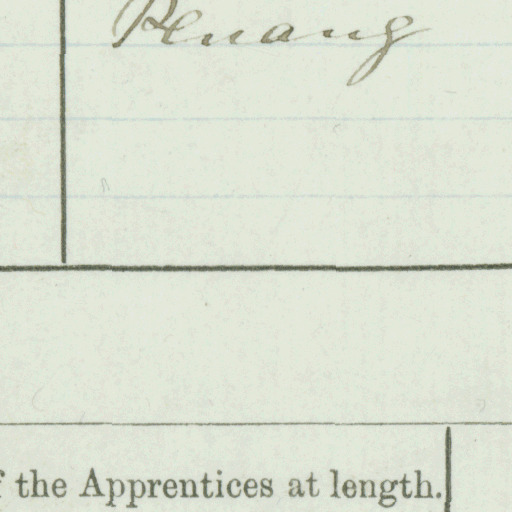 Penang
the Apprentices at length.